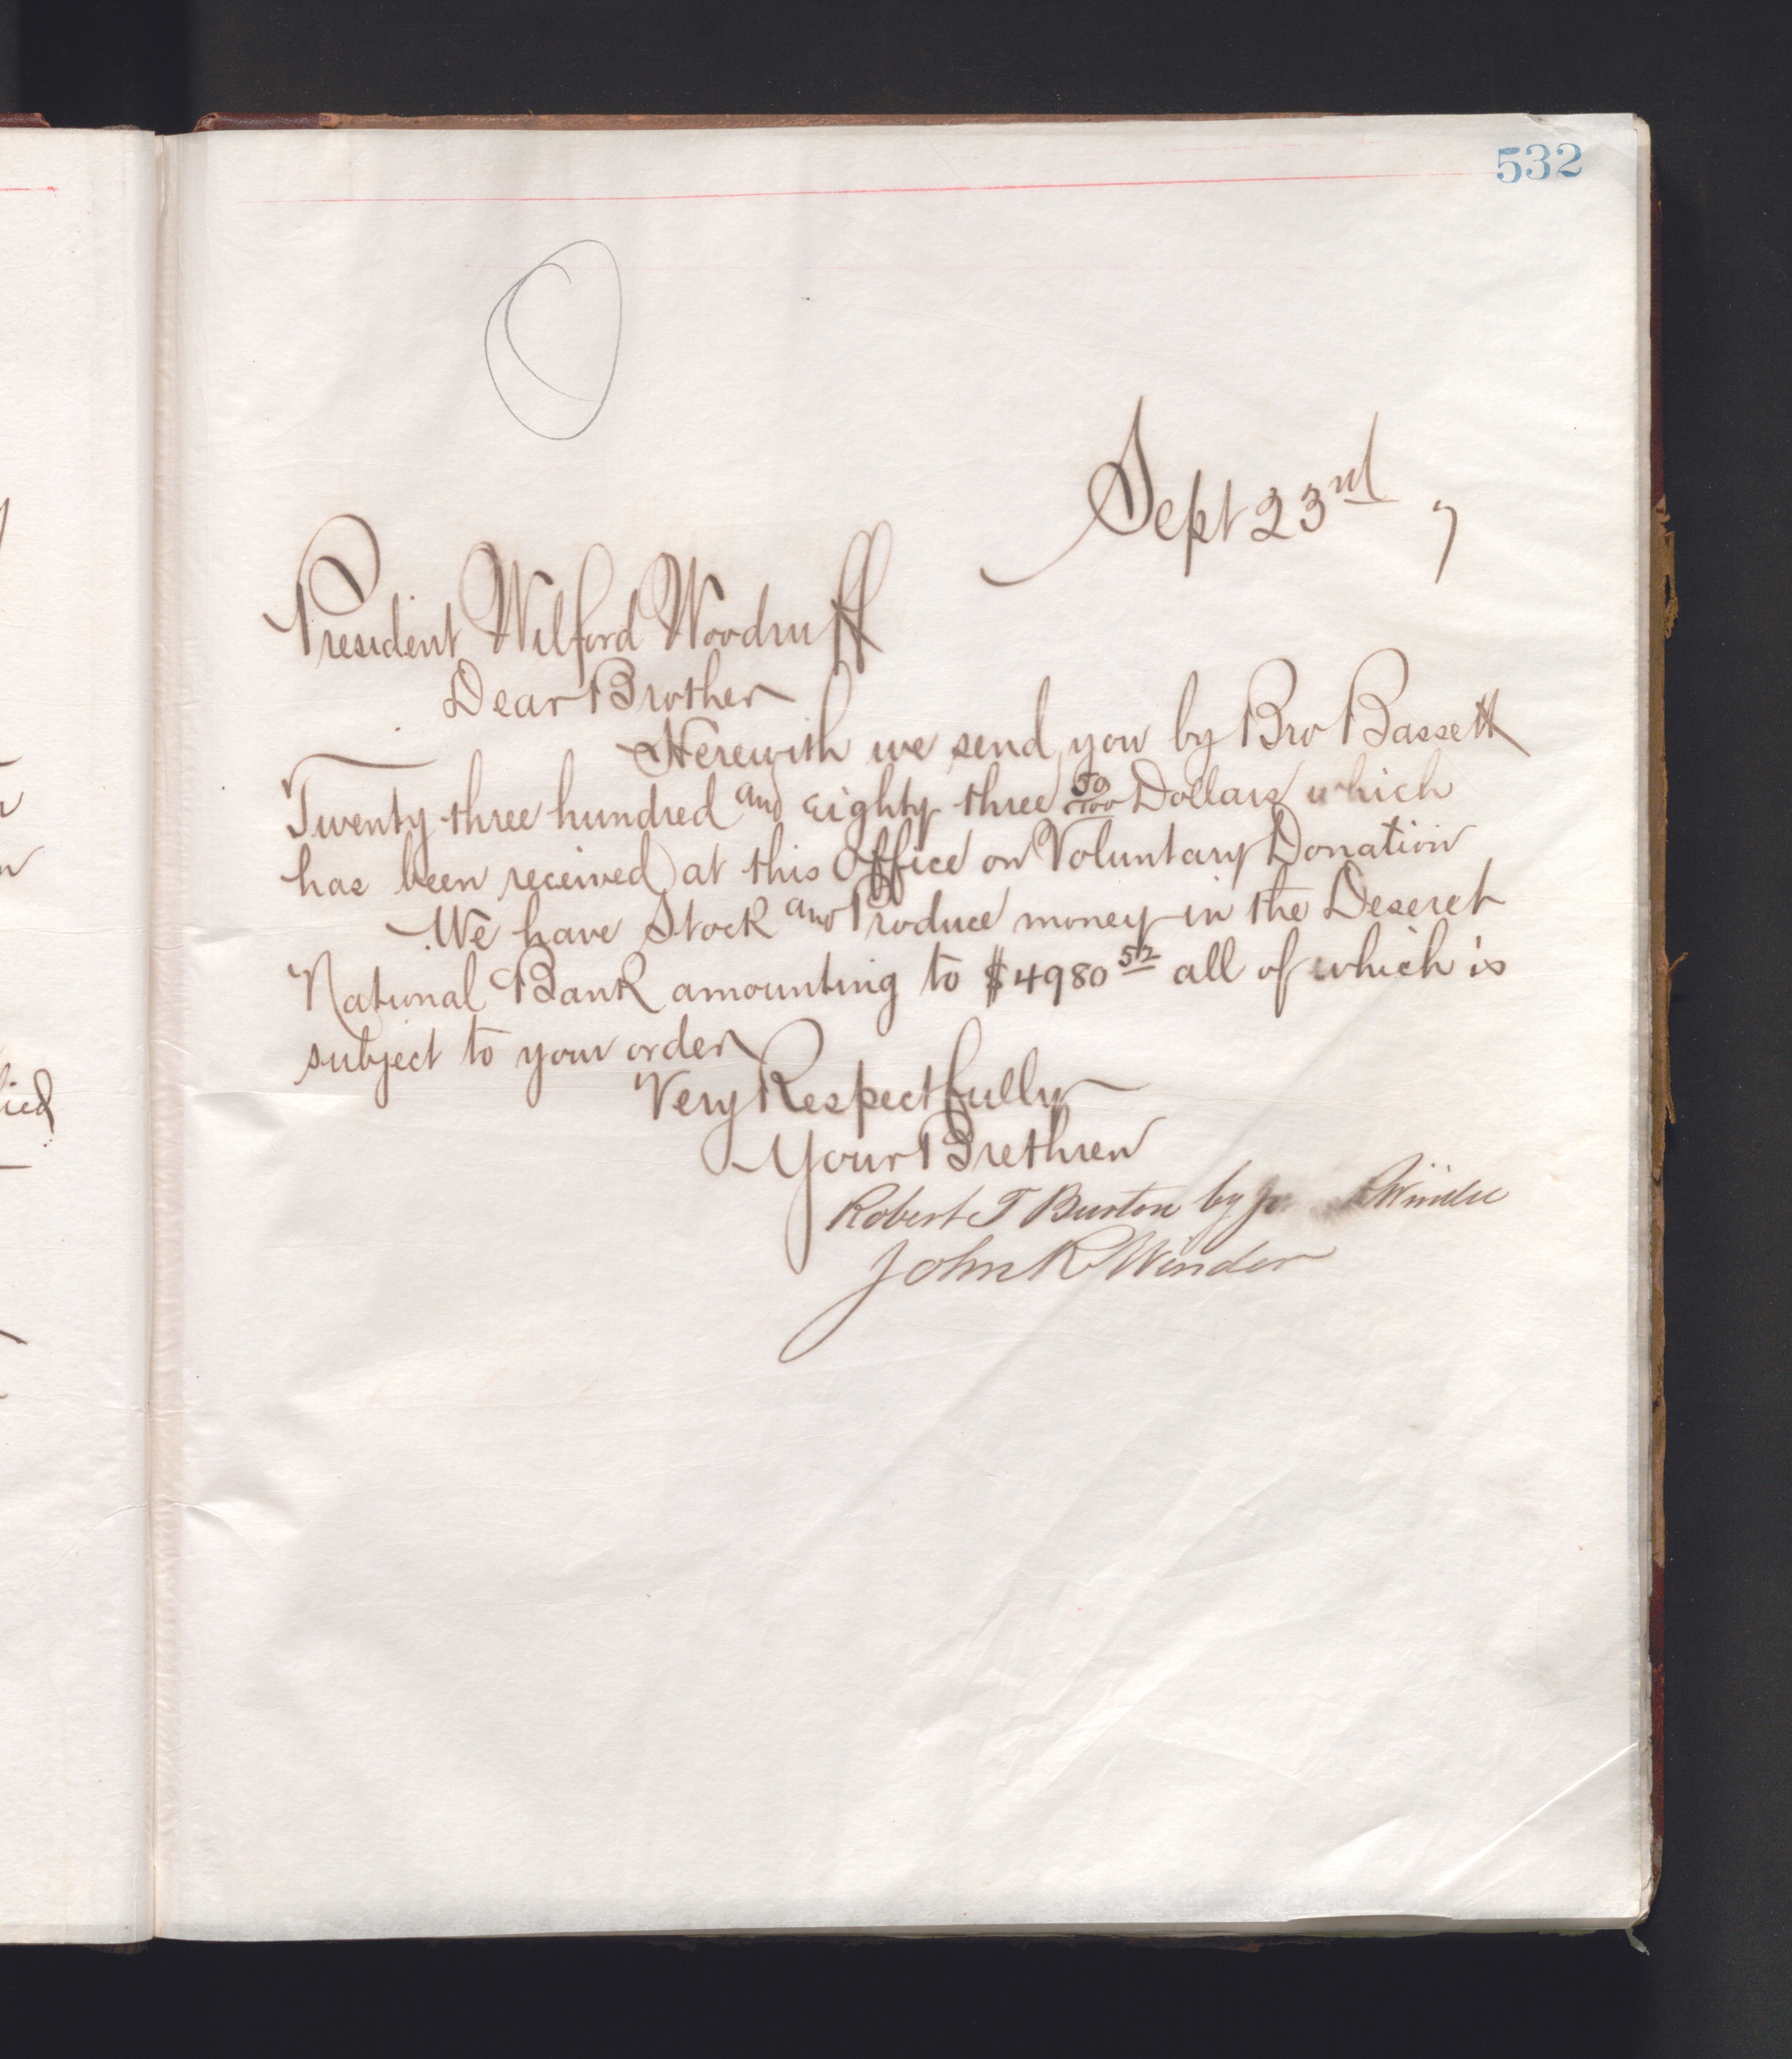 532
Sept 23rd 7
President Wilford Woodruff
Dear Brother
Herewith we send you by Bro Bassett
Twenty three hundred and Eighty three 50/100 Dollars which
has been received at this Office on Voluntary Donation
We have Stock and Produce money in the Deseret
National Bank amounting to $4980 52 all of which is
subject to your order
Very Respectfully
Your Brethren
Robert T Burton by Winder
John R Winder